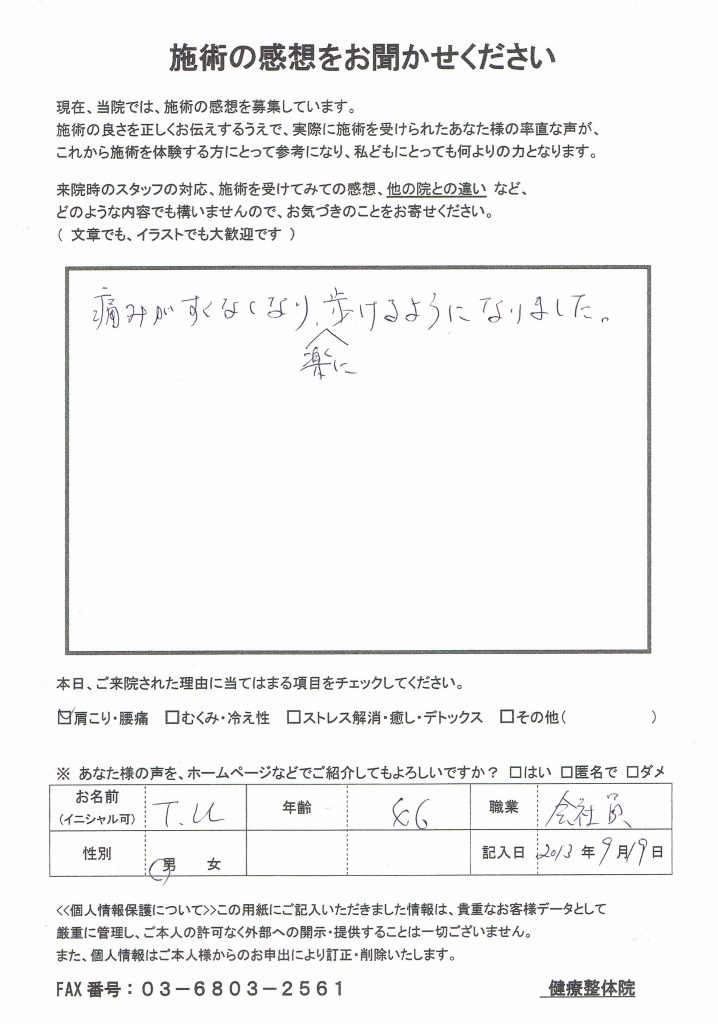 施術の感想をお聞かせください
現在、当院では、施術の感想を募集しています。
施術の良さを正しくお伝えするうえで、実際に施術を受けられたあなた様の率直な声が、
これから施術を体験する方にとって参考になり、私どもにとっても何よりの力となります。
来院時のスタッフの対応、施術を受けてみての感想、他の院との違い など、
どのような内容でも構いませんので、お気づきのことをお寄せください。
( 文章でも、イラストでも大歓迎です )
痛みがすくなくなり、歩けるようになりました。
楽に
本日、ご来院された理由に当てはまる項目をチェックしてください。
☑肩こり・腰痛 □むくみ・冷え性 □ストレス解消・癒し・デトックス □その他( )
※ あなた様の声を、ホームページなどでご紹介してもよろしいですか? □はい □匿名で □ダメ
お名前 (イニシャル可) T.U 年齢 46 職業 会社員
性別 男 女 記入日 2013 年 9 月 19 日
<<個人情報保護について>>この用紙にご記入いただきました情報は、貴重なお客様データとして
厳重に管理し、ご本人の許可なく外部への開示・提供することは一切ございません。
また、個人情報はご本人様からのお申出により訂正・削除いたします。
FAX 番号：03－6803－2561 健療整体院